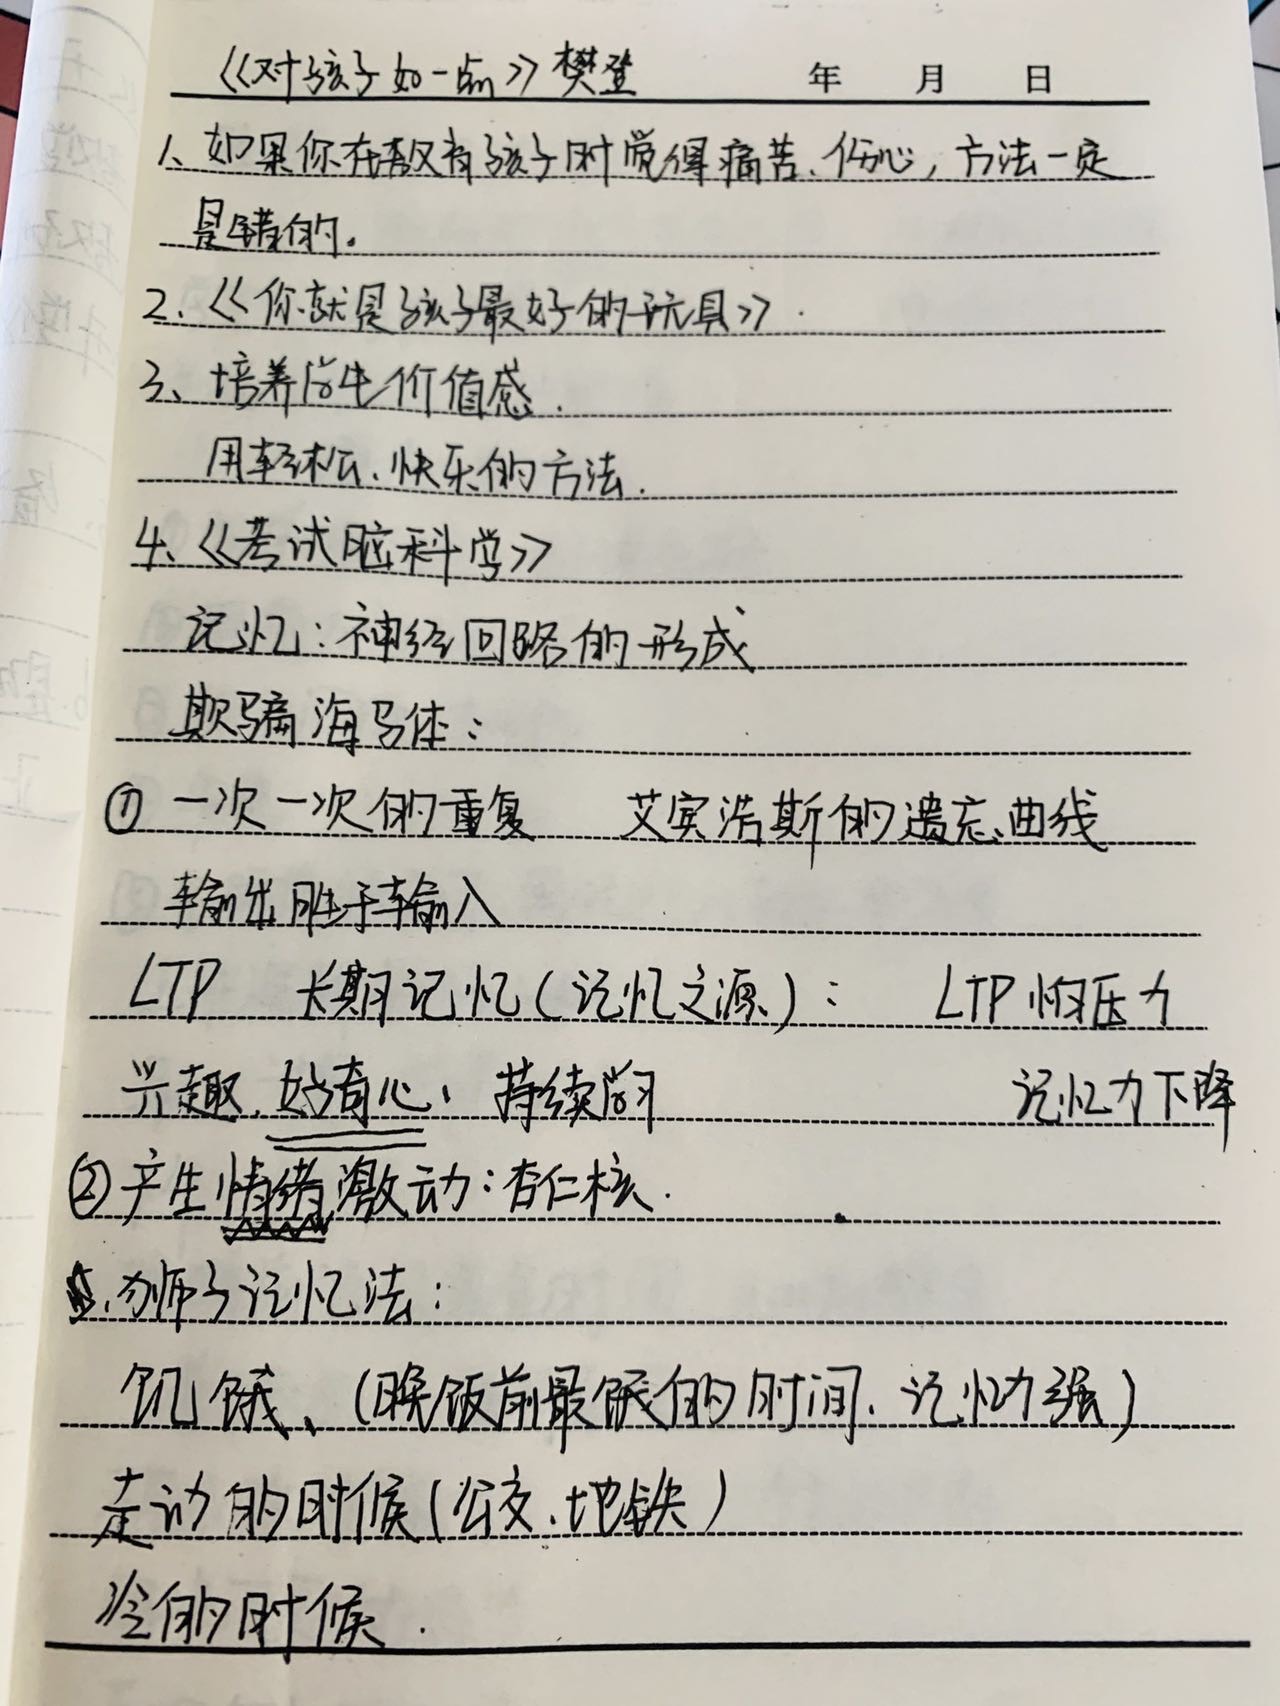 《对孩子如一点》樊登 年 月 日
1、如果你在教育孩子时觉得痛苦、伤心，方法一定
是错的。
2.《你就是孩子最好的玩具》.
3、培养学生价值感.
用轻松、快乐的方法.
4、《考试脑科学》
记忆：神经回路的形成
欺骗海马体：
①一次一次的重复 艾宾浩斯的遗忘曲线
输出胜于输入
LTP 长期记忆(记忆之源)： LTP怕压力
兴趣、好奇心、持续学习 记忆力下降
②产生情绪激动：杏仁核.
5、狮子记忆法：
饥饿、(晚饭前最饿的时间、记忆力强)
走动的时候(公交、地铁)
冷的时候.